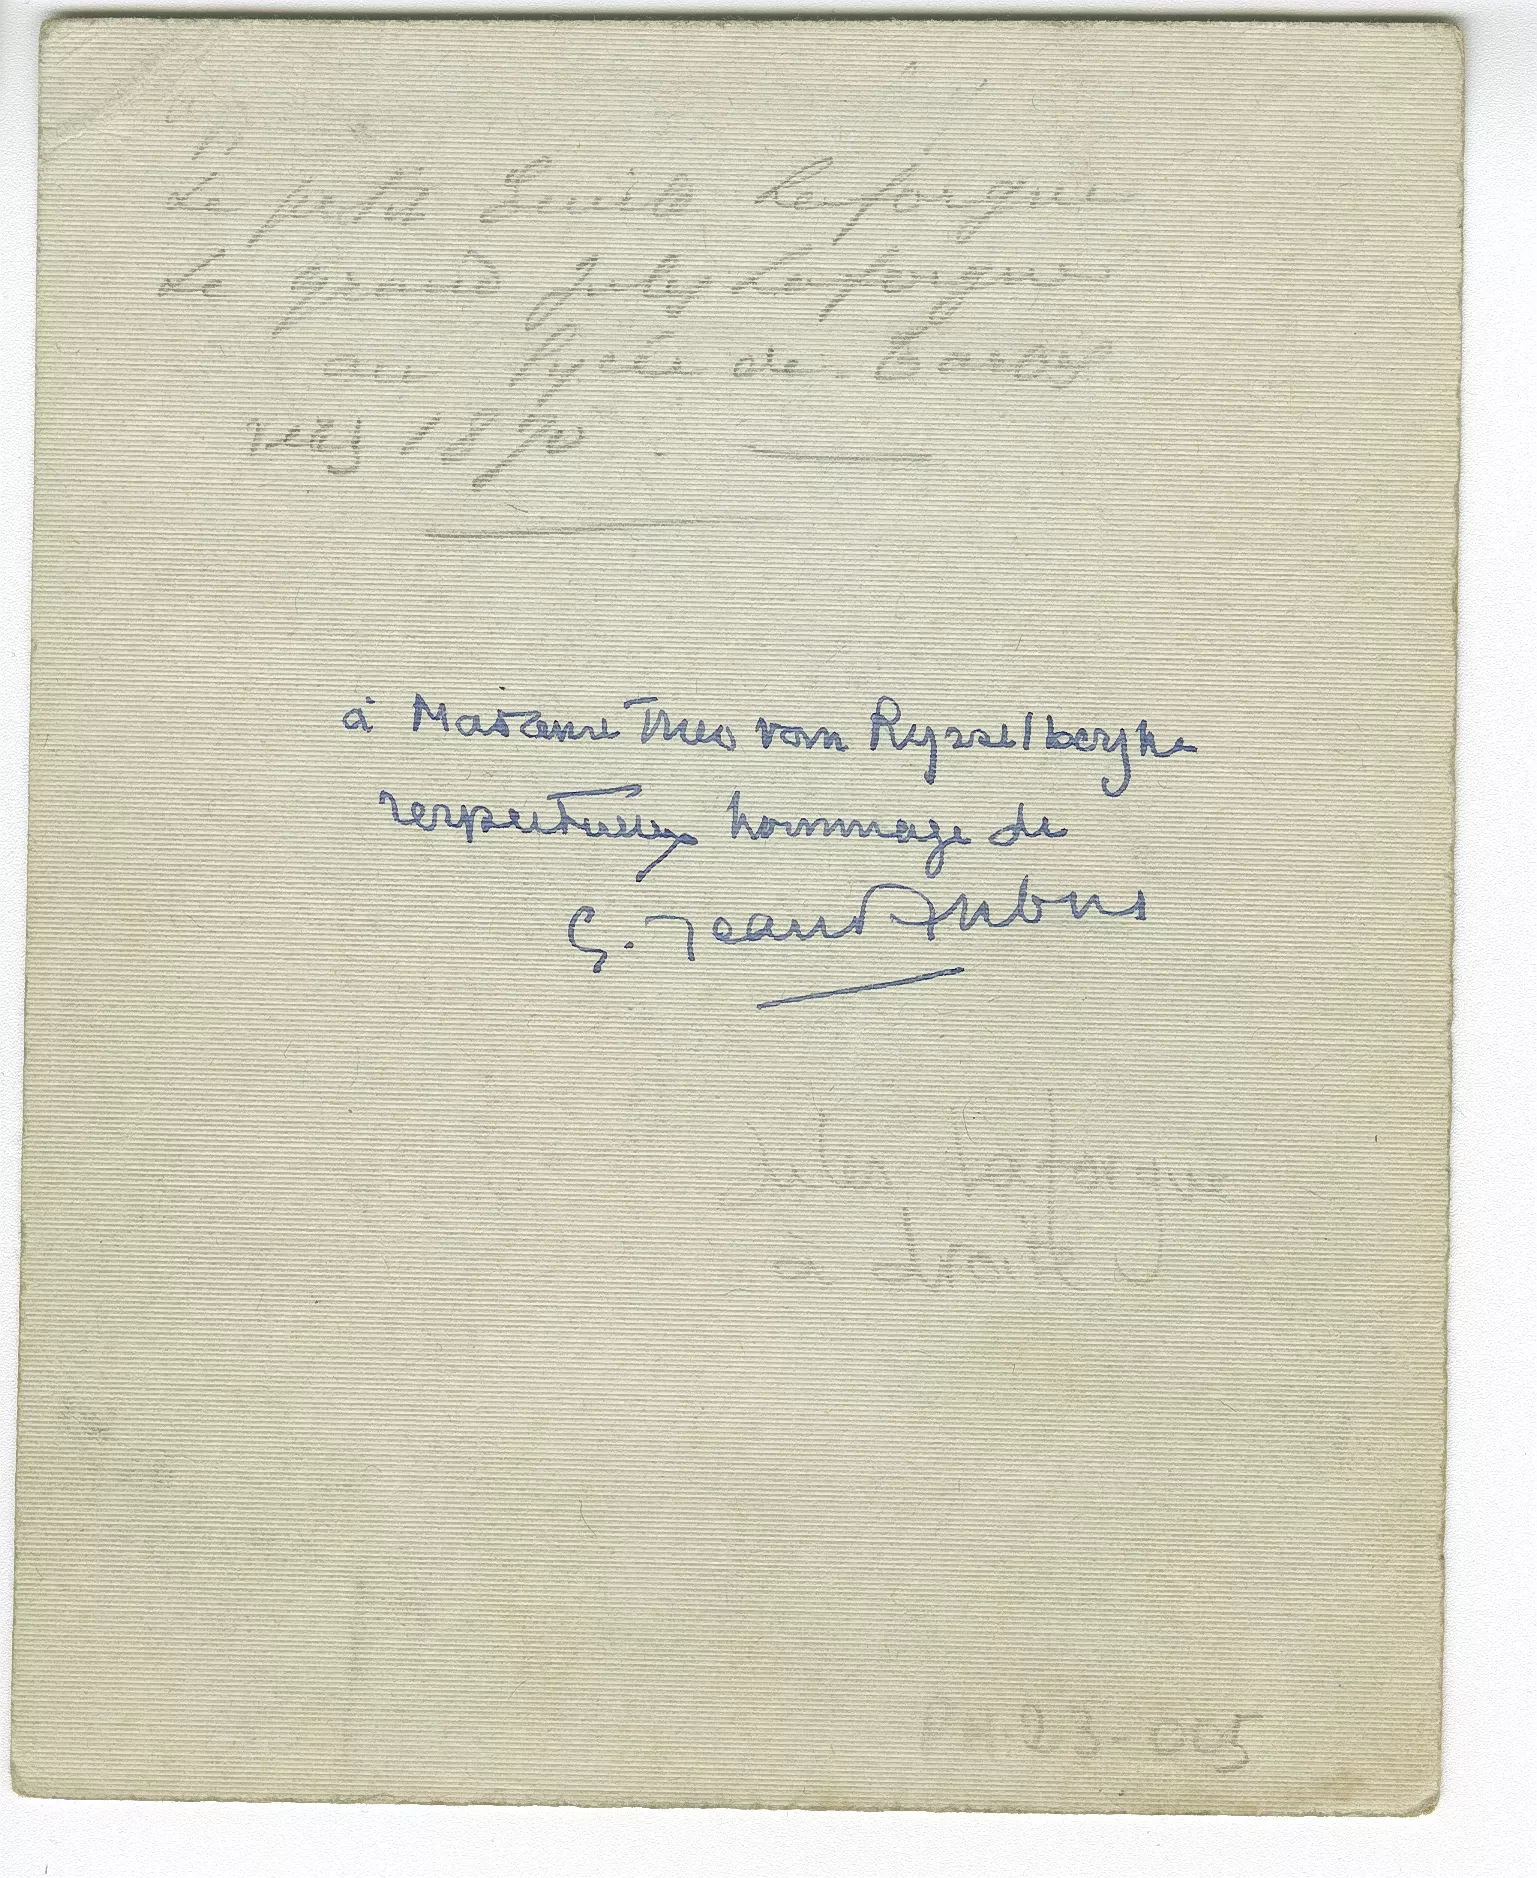 Le petit Emile Laforgue
Le grand Jules Laforgue
au lycée de Tarbes
vers 1870.
à Madame Theo van Rysselberghe
respectueux hommage de
G. Jean Aubry
Jules Laforgue
à droite
PH.23-005